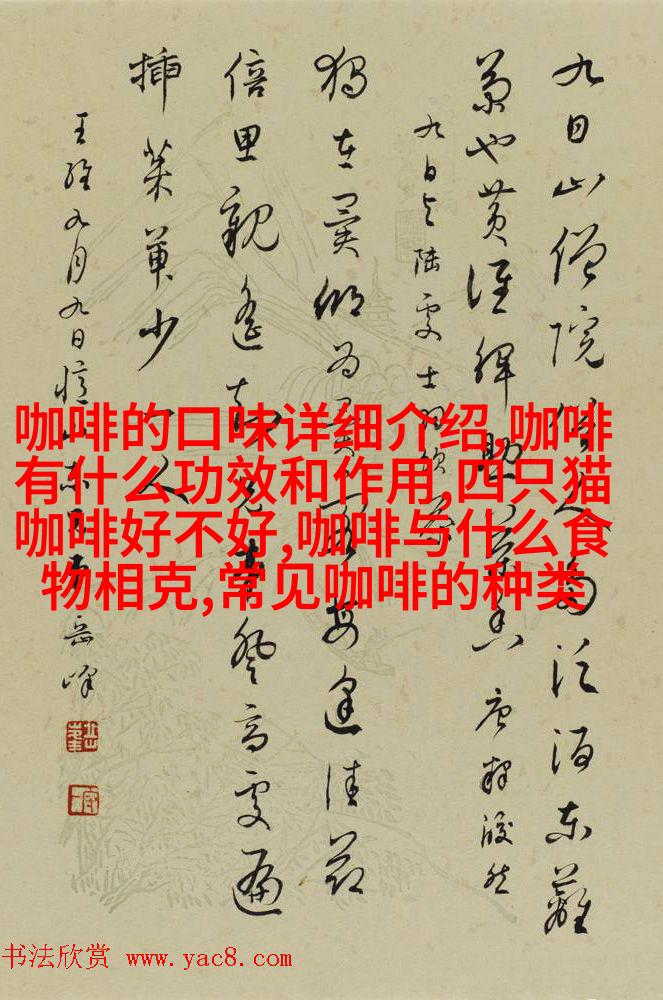 九日山僧院俗人多泛酒东篱
菊也黄谁解助茶香 唐释皎然
九日与陆处士羽饮茶
独在异乡为异客每逢佳节
倍思亲遥知兄弟登高处遍
插茱萸少一人
王维九月九日忆山东兄弟 岳峰
咖啡的口味详细介绍,咖啡
有什么功效和作用,四只猫
咖啡好不好,咖啡与什么食
物相克,常见咖啡的种类
书法欣赏 www.yac8.com